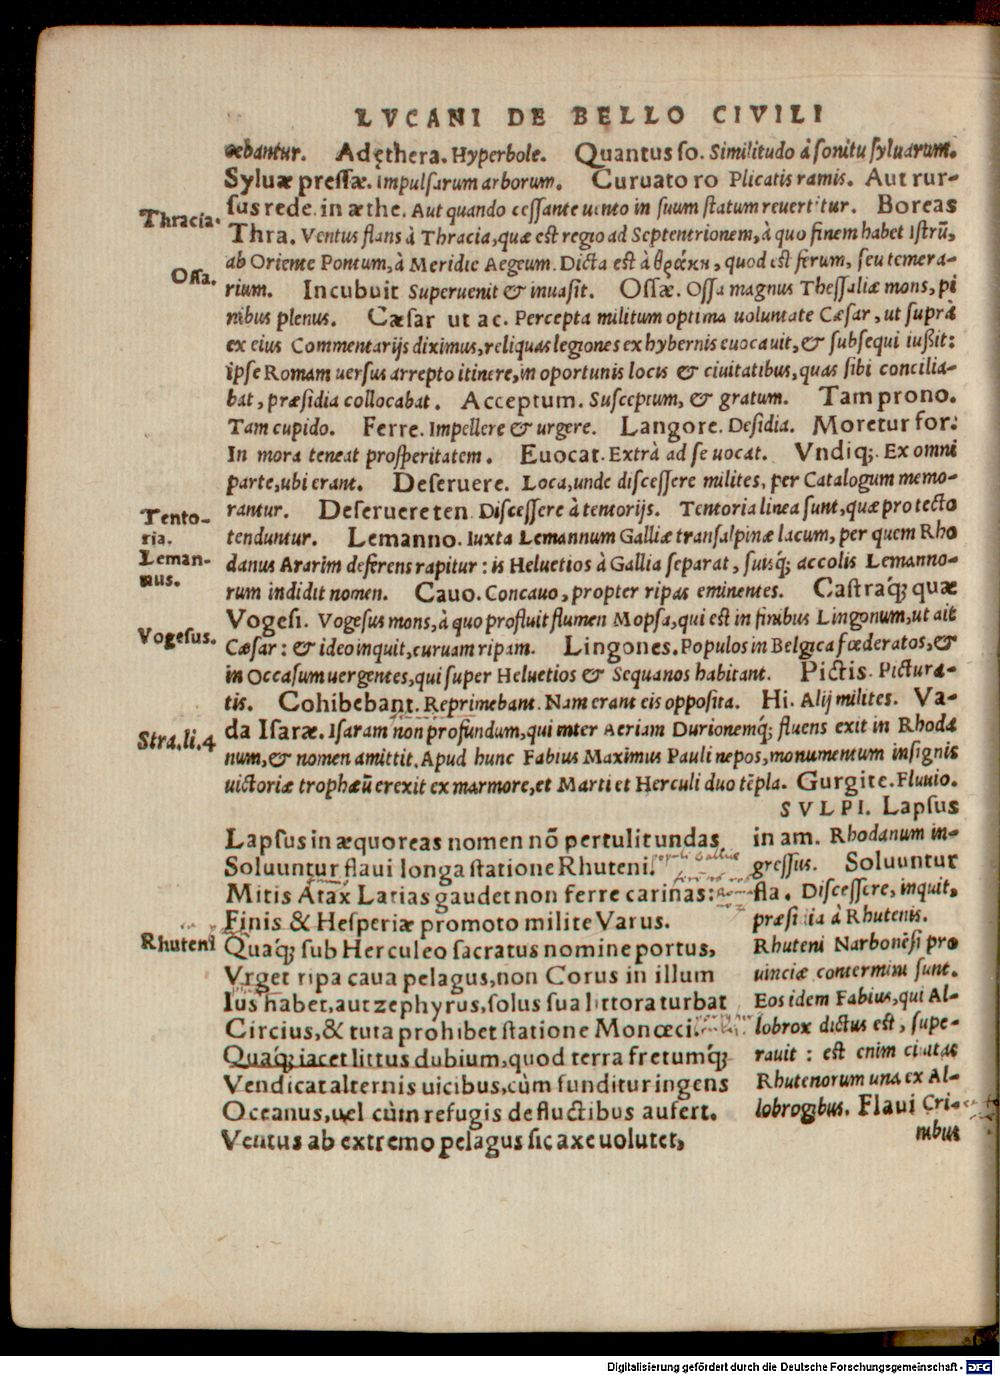 LVCANI DE BELLO CIVILI
æbantur. Ad ęthera. Hyperbole. Quantus so. Similitudo à sonitu syluarum.
Syluæ pressæ. impulsarum arborum. Curuato ro Plicatis ramis. Aut rur-
sus rede. in æthe. Aut quando cessante uento in suum statum reuertitur. Boreas
Thracia.
Thra. Ventus flans à Thracia, quæ est regio ad Septentrionem, à quo finem habet Istrũ,
ab Oriente Pontum, à Meridie Aegeum. Dicta est à θράκη, quod est ferum, seu temera-
Ossa.
rium. Incubuit Superuenit & inuasit. Ossæ. Ossa magnus Thessaliæ mons, pi
nibus plenus. Cæsar ut ac. Percepta militum optima uoluntate Cæsar, ut suprà
ex eius Commentarijs diximus, reliquas legiones ex hybernis euocauit, & subsequi iußit:
ipse Romam uersus arrepto itinere, in oportunis locis & ciuitatibus, quas sibi concilia-
bat, præsidia collocabat. Acceptum. Susceptum, & gratum. Tam prono.
Tam cupido. Ferre. Impellere & urgere. Langore. Desidia. Moretur for.
In mora teneat prosperitatem. Euocat. Extrà ad se uocat. Vndiq;. Ex omni
parte, ubi erant. Deseruere. Loca, unde discessere milites, per Catalogum memo-
rantur. Deseruere ten. Discessere à tentorijs. Tentoria linea sunt, quæ pro tecto
Tento-
ria.
tenduntur. Lemanno. Iuxta Lemannum Galliæ transalpinæ lacum, per quem Rho
Leman-
nus.
danus Ararim deferens rapitur: is Heluetios à Gallia separat, suisq; accolis Lemanno-
rum indidit nomen. Cauo. Concauo, propter ripas eminentes. Castraq; quæ
Vogesi. Vogesus mons, à quo profluit flumen Mopsa, qui est in finibus Lingonum, ut ait
Vogesus.
Cæsar: & ideo inquit, curuam ripam. Lingones. Populos in Belgica fœderatos, &
in Occasum uergentes, qui super Heluetios & Sequanos habitant. Pictis. Pictura-
tis. Cohibebant. Reprimebant. Nam erant eis opposita. Hi. Alij milites. Va-
Stra. li. 4
da Isaræ. Isaram non profundum, qui inter Aeriam Durionemq; fluens exit in Rhoda
num, & nomen amittit. Apud hunc Fabius Maximus Pauli nepos, monumentum insignis
uictoriæ trophæũ erexit ex marmore, et Marti et Herculi duo tẽpla. Gurgite. Fluuio.
SVLPI. Lapsus
Lapsus in æquoreas nomen nõ pertulit undas.
Soluuntur flaui longa statione Rhuteni.
Mitis Atax Latias gaudet non ferre carinas:
Finis & Hesperiæ promoto milite Varus.
Rhuteni
Quaq; sub Herculeo sacratus nomine portus,
Vrget ripa caua pelagus, non Corus in illum
Ius habet, aut zephyrus, solus sua littora turbat
Circius, & tuta prohibet statione Monœci.
Quaq; iacet littus dubium, quod terra fretumq;
Vendicat alternis uicibus, cùm funditur ingens
Oceanus, uel cùm refugis de fluctibus aufert.
Ventus ab extremo pelagus sic axe uolutet,
in am. Rhodanum in-
gressus. Soluuntur
fla. Discessere, inquit,
præsidia à Rhutenis.
Rhuteni Narbonẽsi pro
uinciæ contermini sunt.
Eos idem Fabius, qui Al-
lobrox dictus est, supe-
rauit: est enim ciuitas
Rhutenorum una ex Al-
lobrogibus. Flaui Cri-
nibus
Digitalisierung gefördert durch die Deutsche Forschungsgemeinschaft - DFG